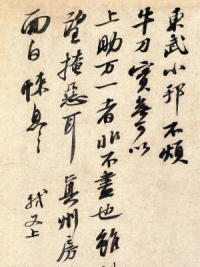 東武小邦不煩
牛刀實無可以
上助万一者非不盡也雖
望掩惡耳 真州房
面白悚息〻
軾又上